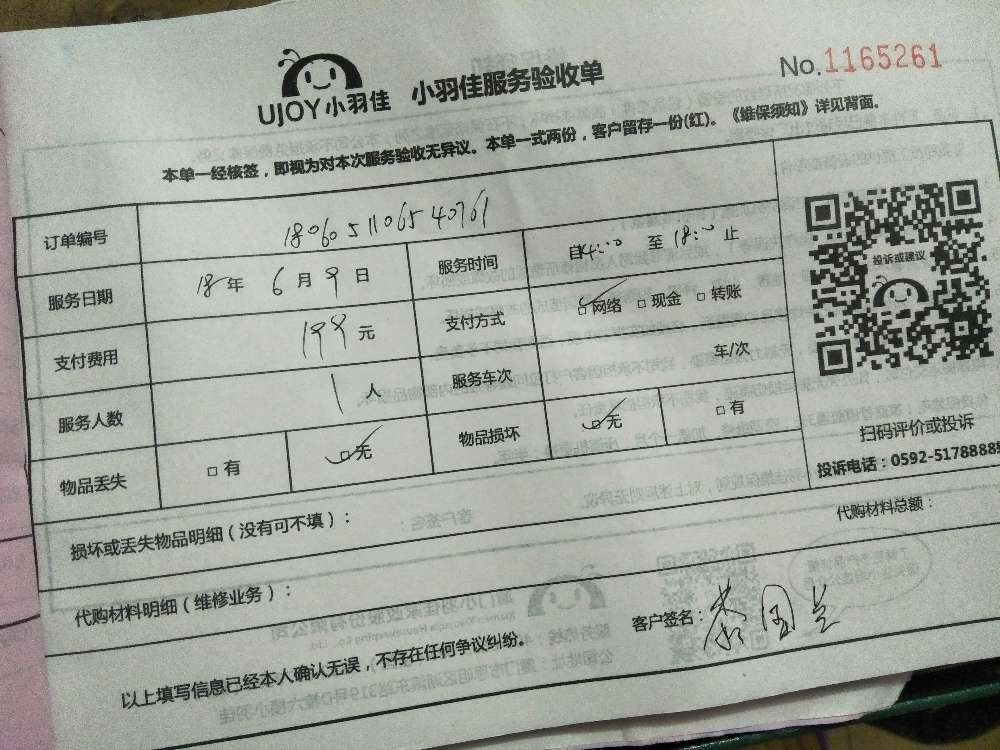 UJOY小羽佳 小羽佳服务验收单 No.1165261
本单一经核签，即视为对本次服务验收无异议。本单一式两份，客户留存一份(红)。《维保须知》详见背面。
订单编号 180605110654 0761
服务日期 18年 6月9日 服务时间 自14:00 至18:00止
支付费用 199元 支付方式 □网络 □现金 □转账
服务人数 1人 服务车次 车/次
物品丢失 □有 □无 物品损坏 □无 □有
投诉或建议
扫码评价或投诉
投诉电话：0592-5178888
损坏或丢失物品明细（没有可不填）：
代购材料总额：
代购材料明细（维修业务）：
以上填写信息已经本人确认无误，不存在任何争议纠纷。
客户签名：